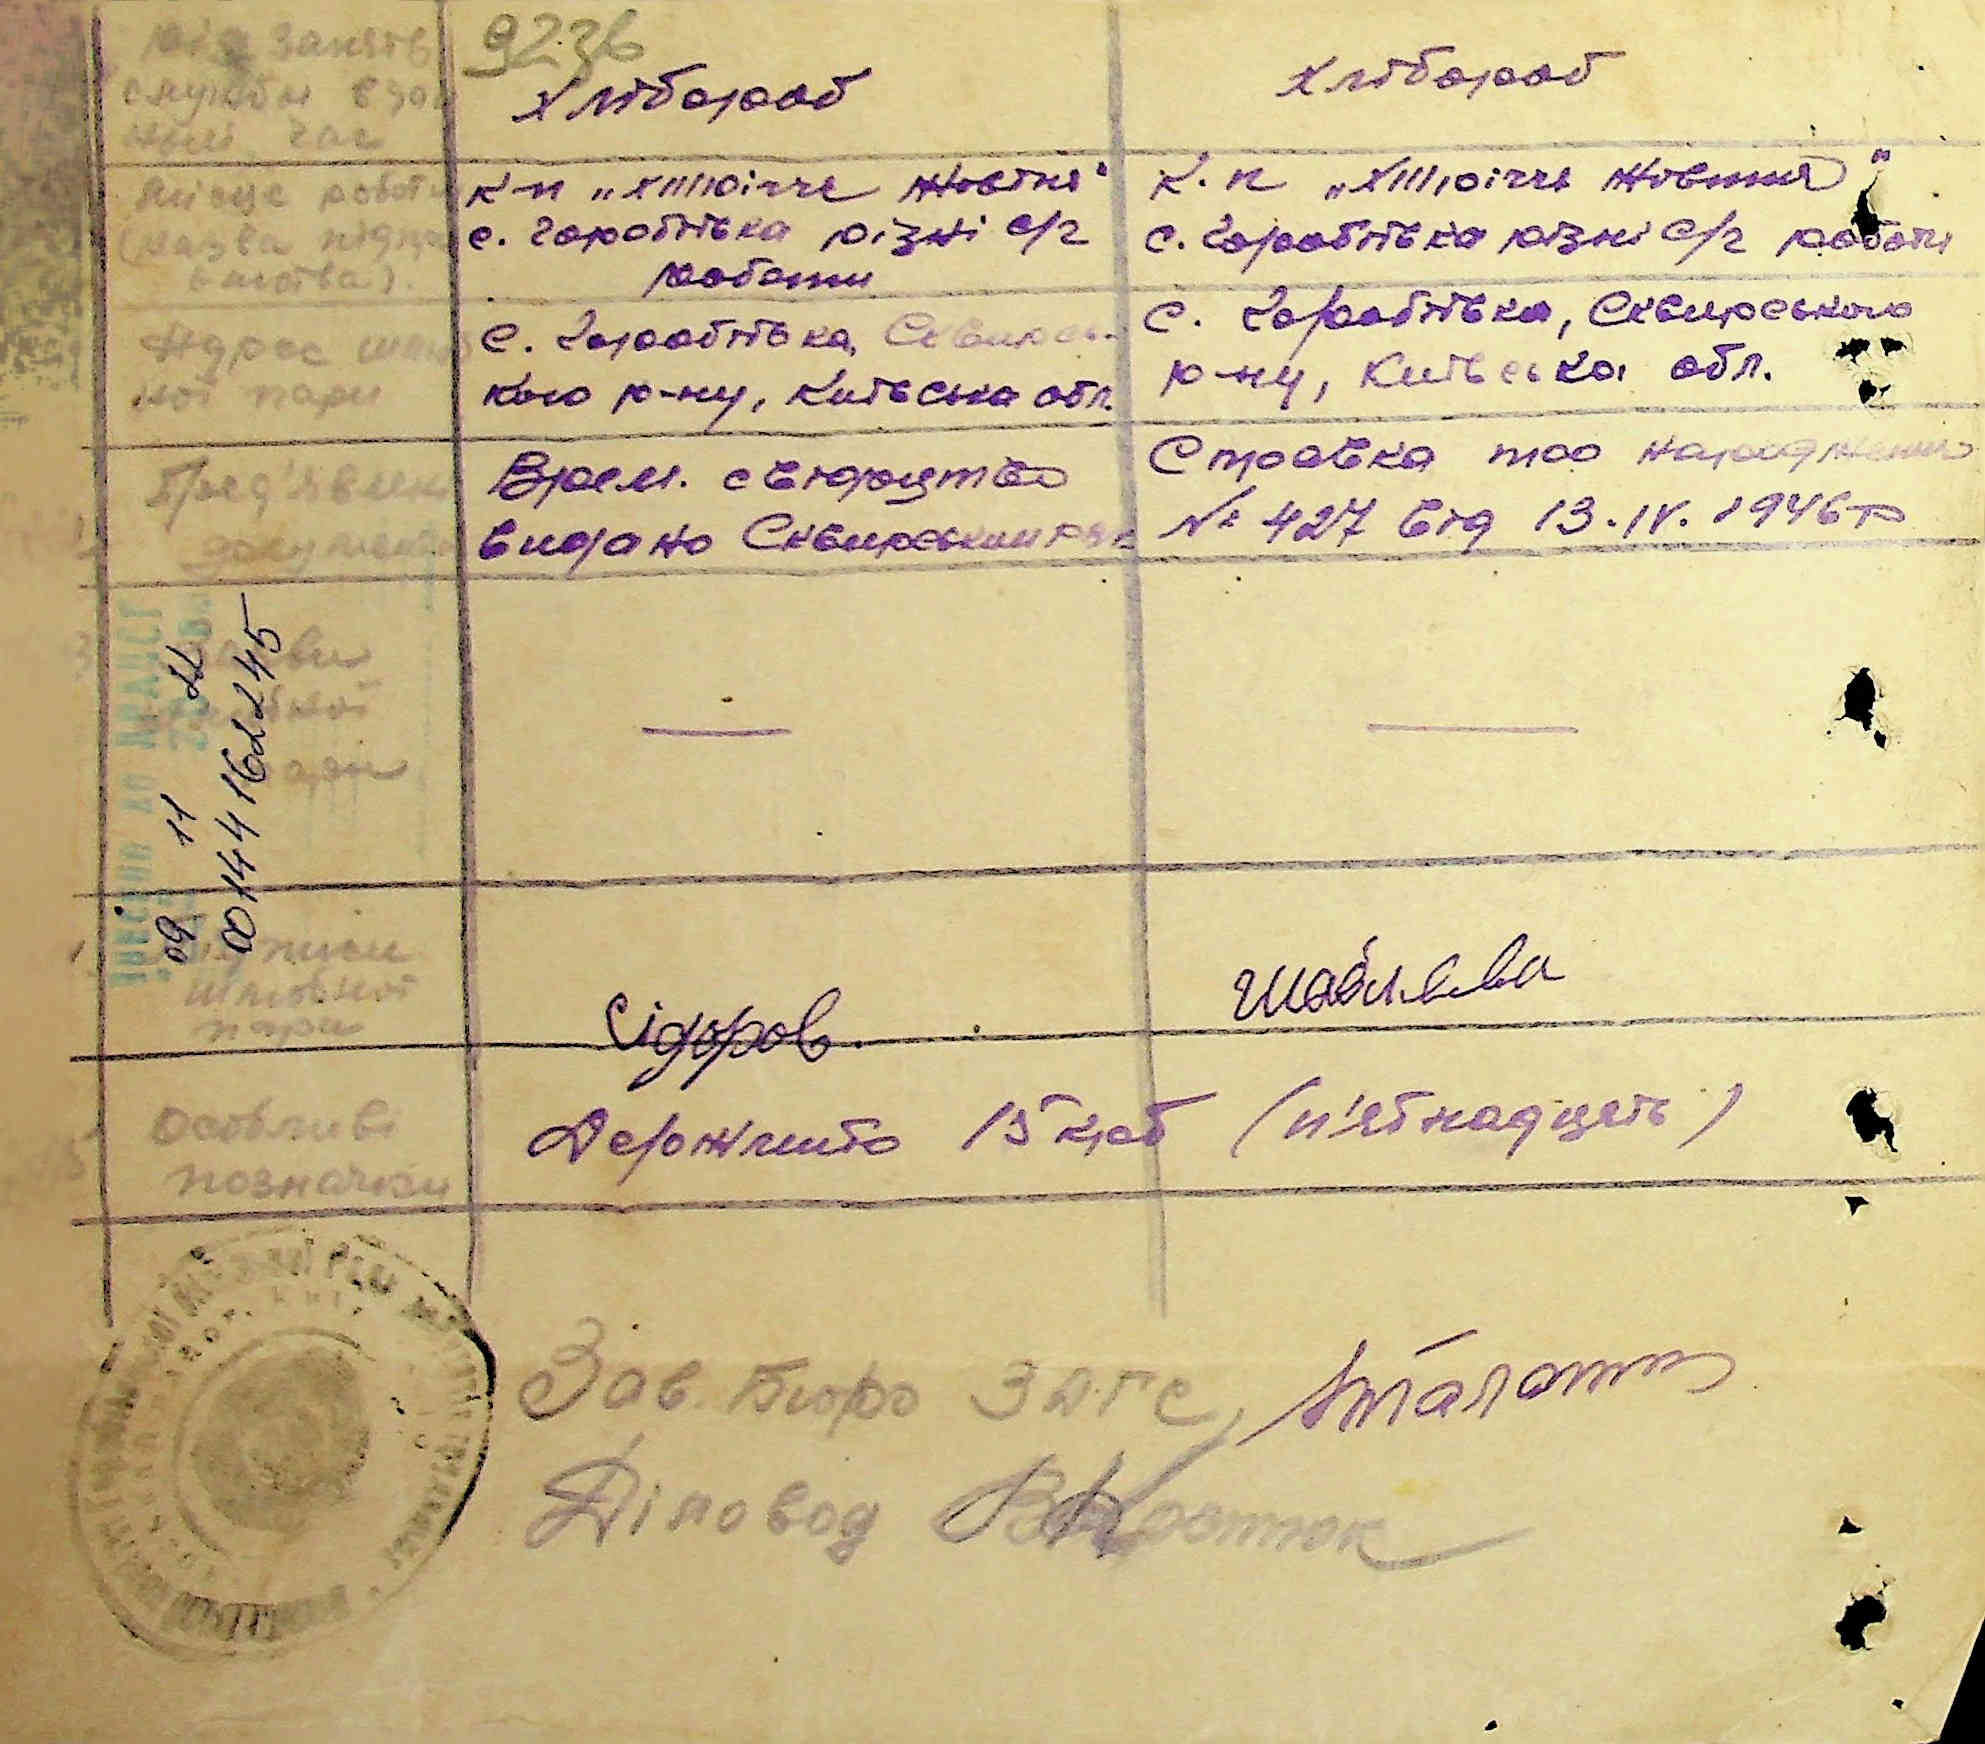 9236
Рід занять
служби в дан
ный час
Хлібороб
Хлібороб
Місце роботи
(назва підпр
ємства).
к-п „ХІІІ річчя Жовтня“
с. Горобіївка різні с/г
роботи
к. п „ХІІІ річчя Жовтня“
с. Горобіївка різні с/г роботи
Адрес шлюб
ної пари
с. Горобіївка, Сквирсь-
кого р-ну, Київська обл.
с. Горобіївка, Сквирського
р-ну, Київська обл.
Пред'явлені
документи
Врем. свідоцтво
видано Сквирським
Справка про народження
№ 427 від 13.IV.1946 р
09 11 22
00144162245
підписи
шлюбної
пари
Сідоров.
Шаблієва
Особливі
позначки
Держмито 15 крб (п'ятнадцять)
Зав. Бюро ЗАГС
Діловод